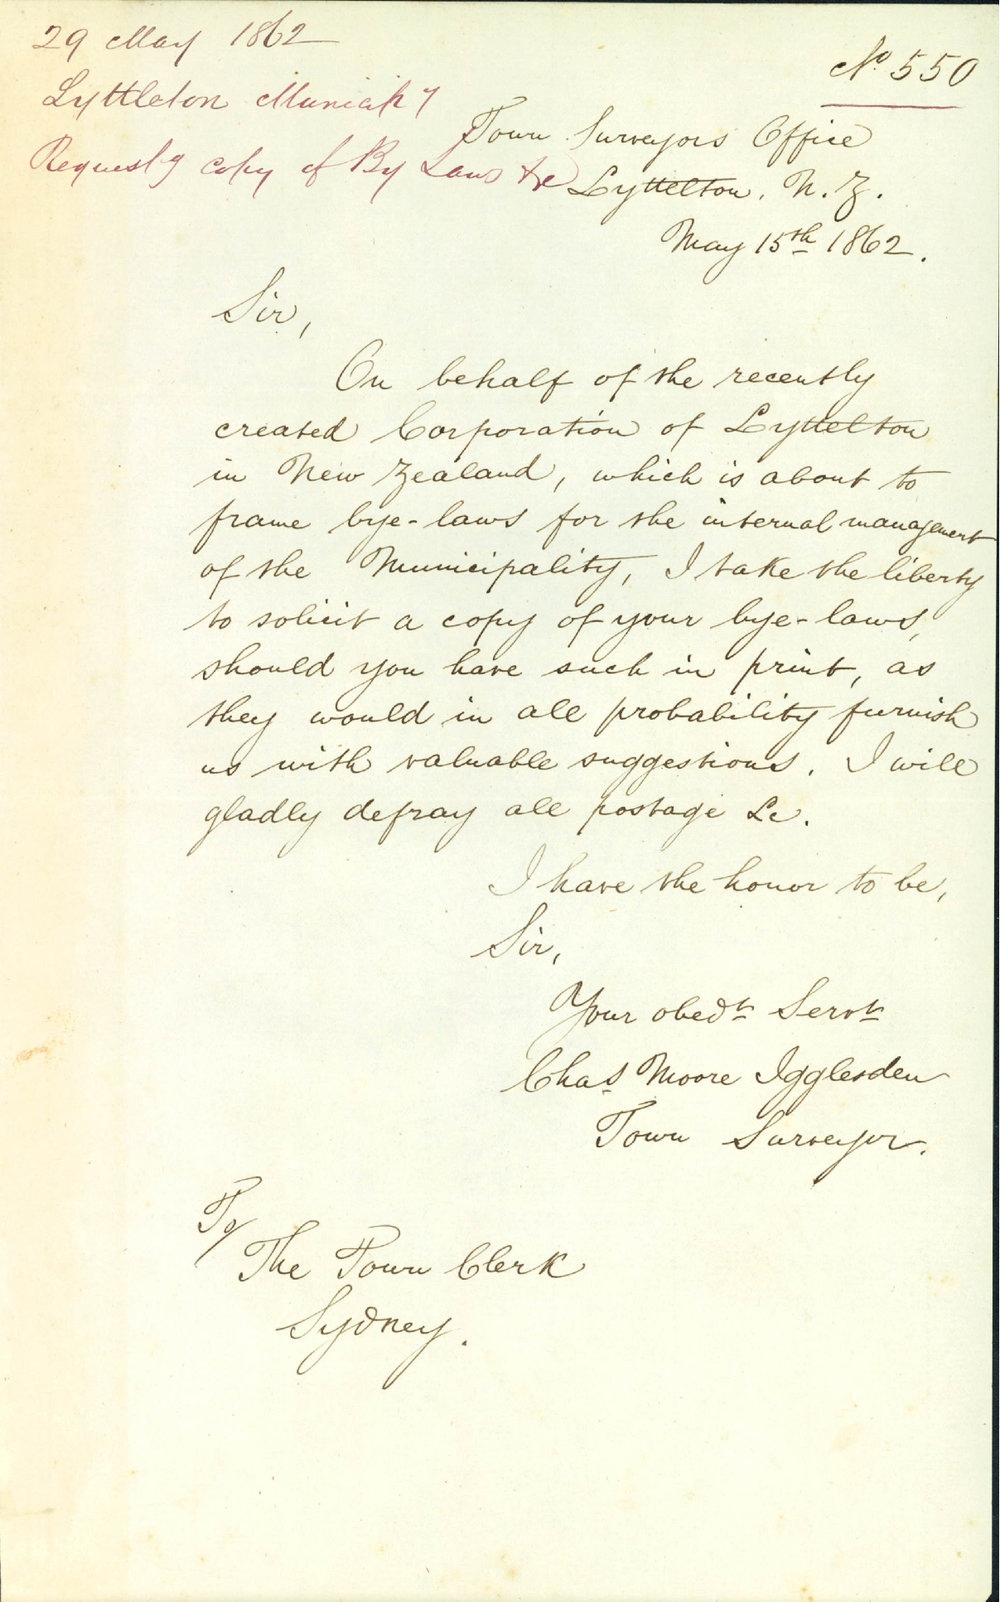 29 May 1862
Lyttleton Municip y
Request'g copy of By Laws &c
No. 550
Town Surveyors Office
Lyttelton, N.Z.
May 15th 1862.
Sir,
On behalf of the recently
created Corporation of Lyttelton
in New Zealand, which is about to
frame bye-laws for the internal management
of the Municipality, I take the liberty
to solicit a copy of your bye-laws,
should you have such in print, as
they would in all probability furnish
us with valuable suggestions. I will
gladly defray all postage &c.
I have the honor to be,
Sir,
Your obedt Servt
Chas Moore Igglesden
Town Surveyor.
To/
The Town Clerk
Sydney.